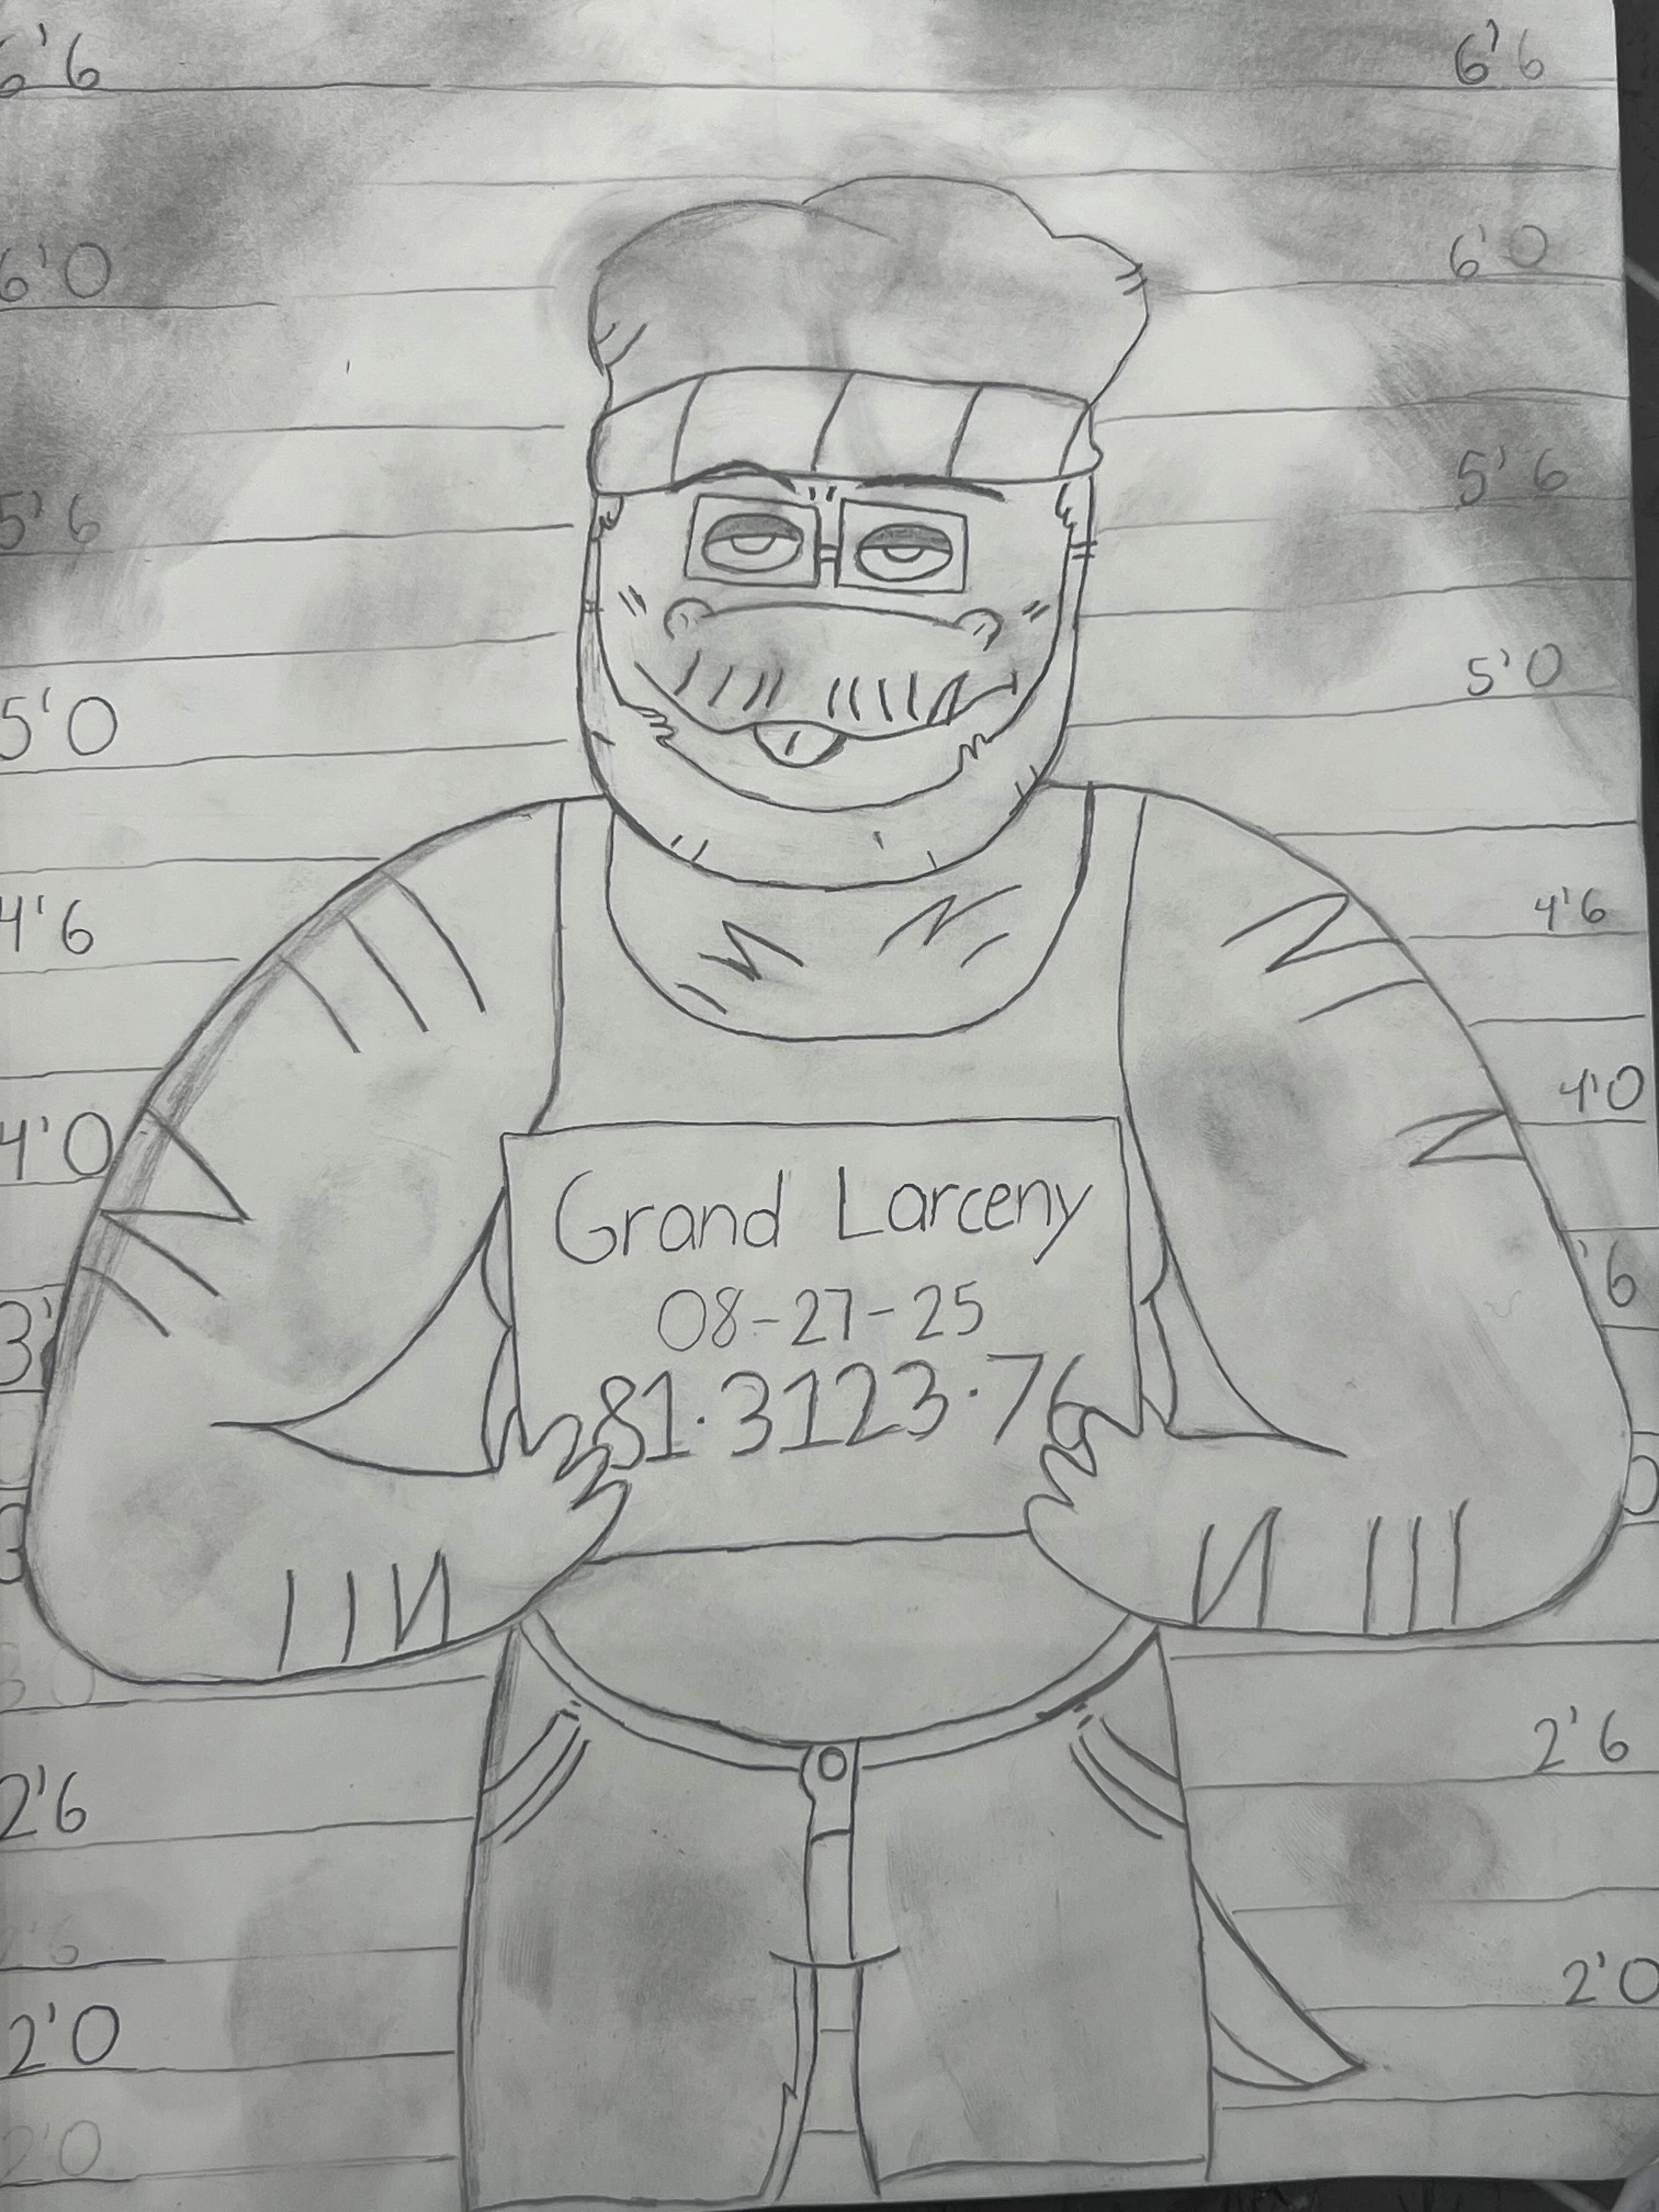 6'6 6'6
6'0 6'0
5'6 5'6
5'0 5'0
4'6 4'6
4'0 4'0
Grand Larceny
08-27-25
81·3123·76
3' '6
2'6 2'6
2'0 2'0
2'0